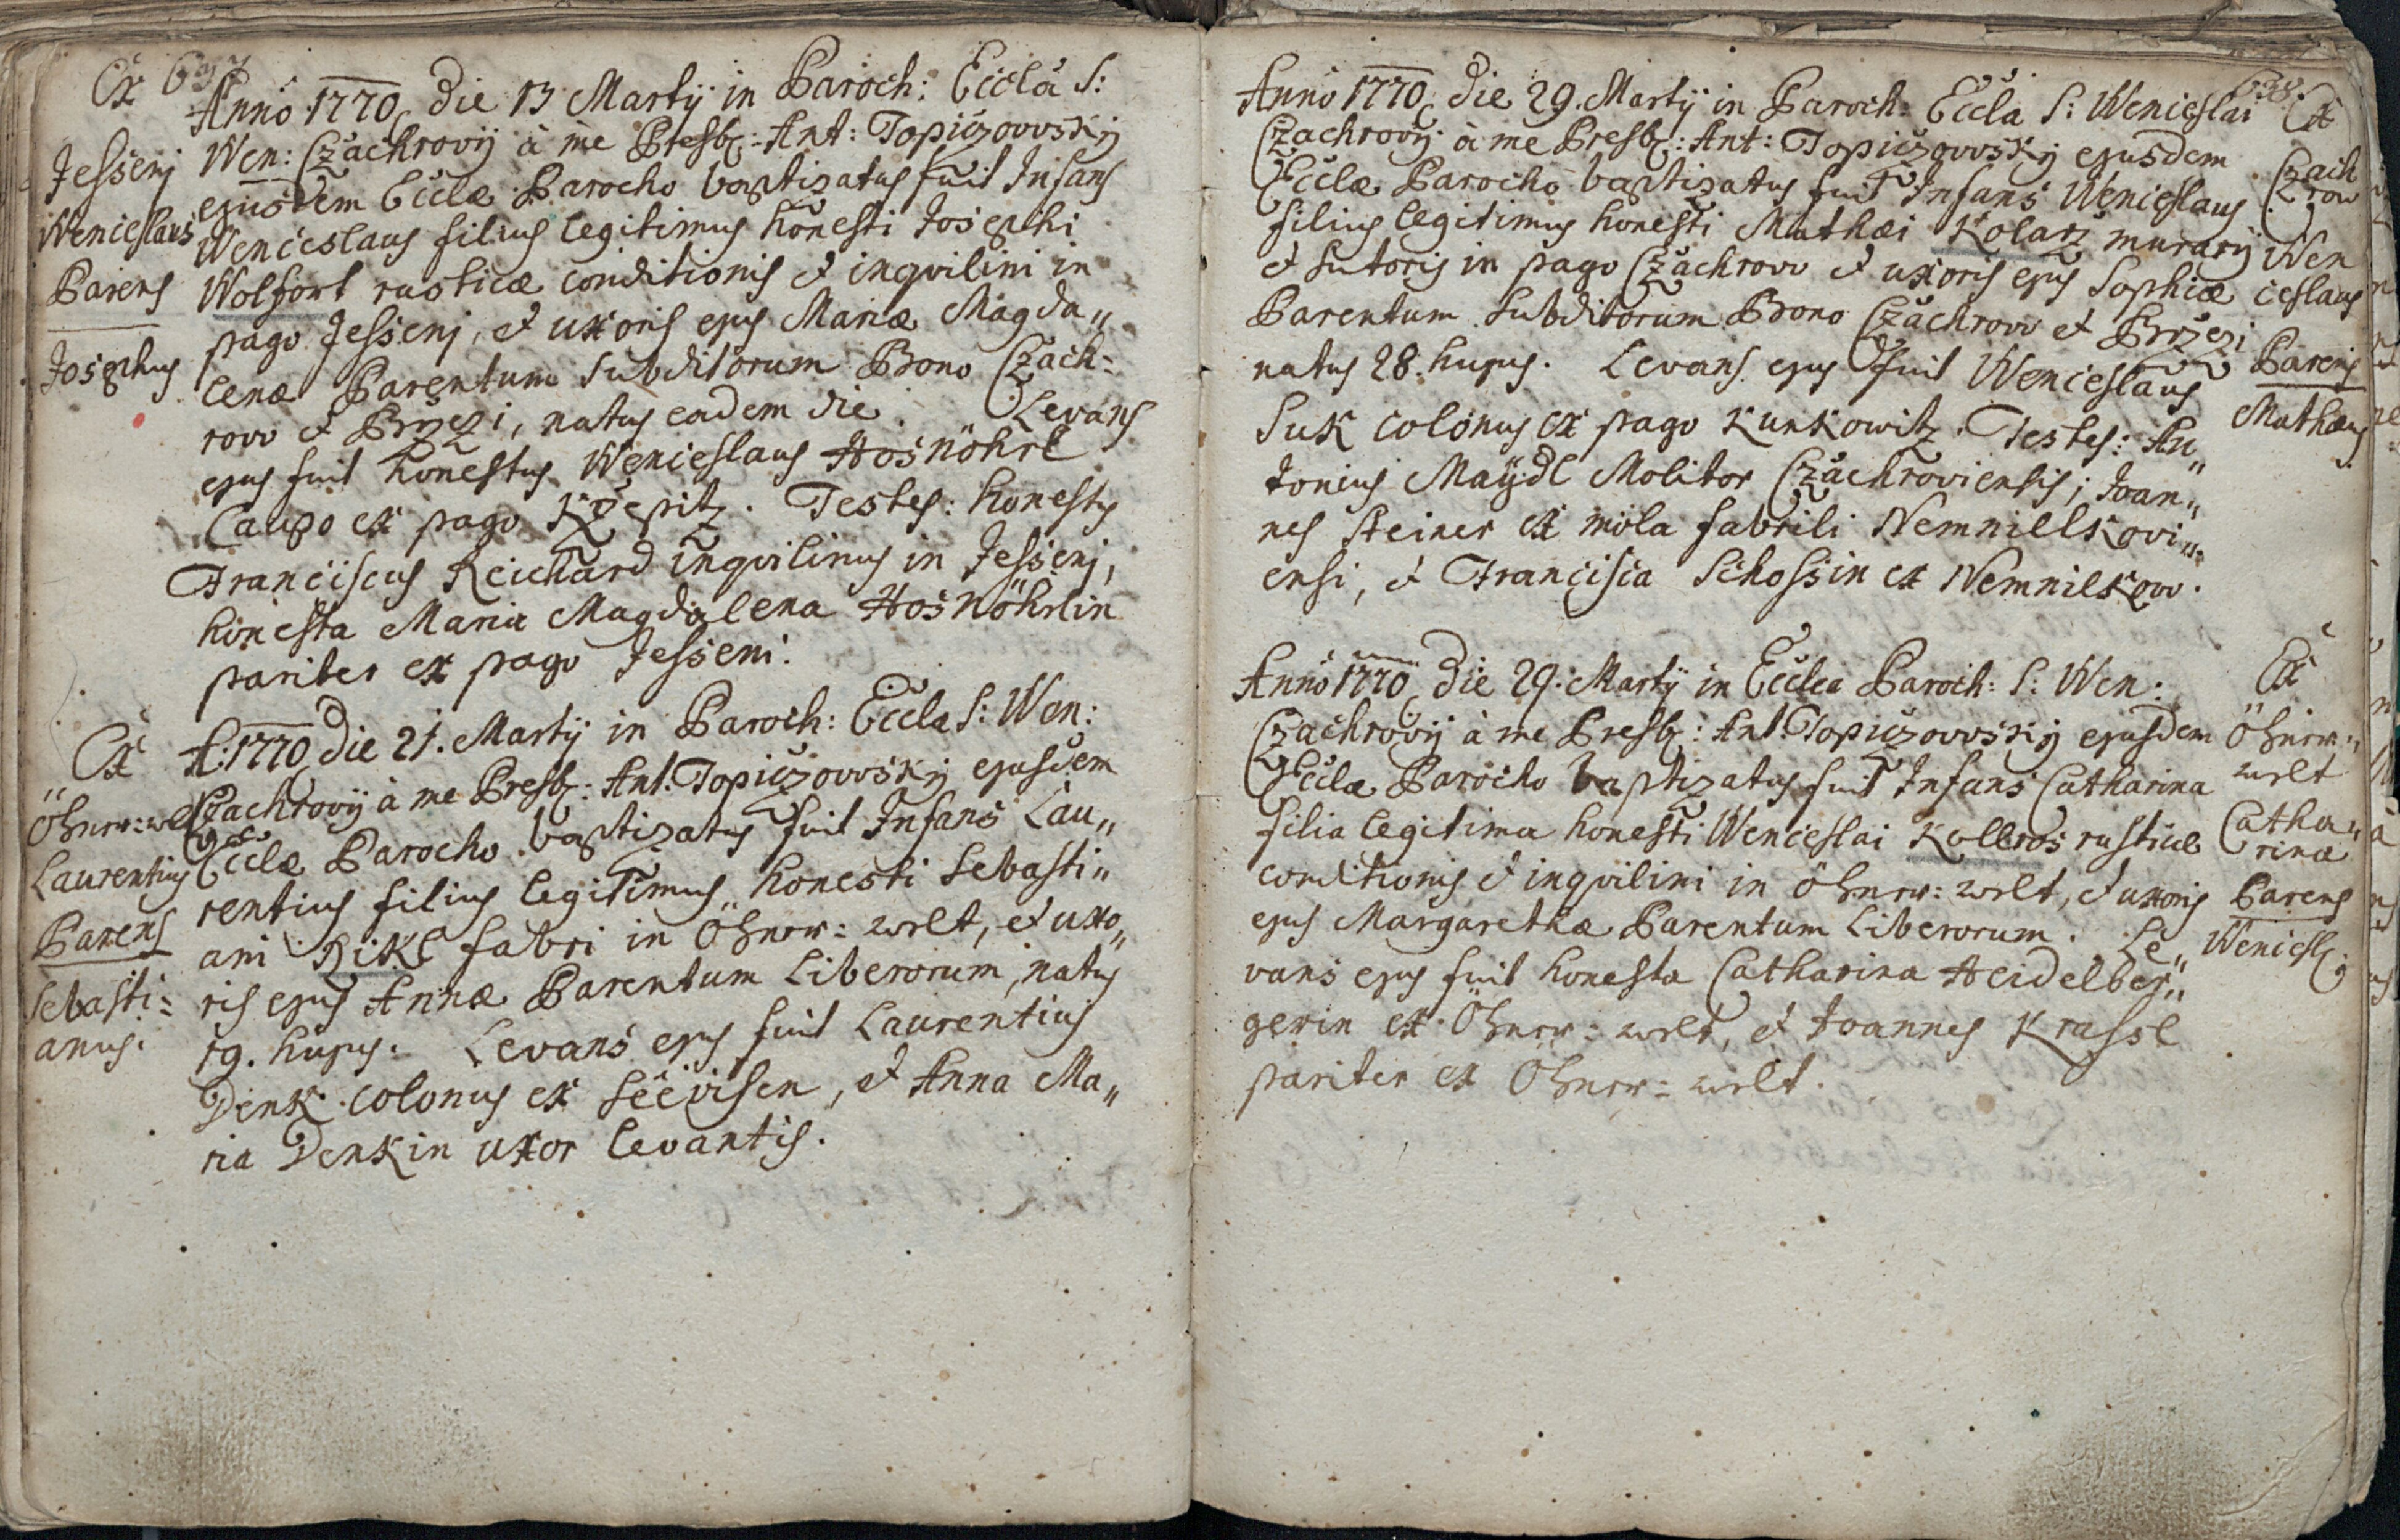 637
Ex
Jessenj
Wenceslaus
Parens
Josephus
Anno 1770 die 13 Martij in Paroch: Eccla S:
Wen: Czachrovij à me Presb: Ant: Topiczovvskij
ejusdem Ecclæ Parocho baptizatus fuit Infans
Wenceslaus filius legitimus honesti Josephi
Wolfort rusticæ conditionis et inqvilini in
pago Jessenj, et uxoris ejus Mariæ Magda„
lenæ Parentum subditorum Bono Czach=
rovv et Brzezi, natus eadem die. Levans
ejus fuit honestus Wenceslaus Hosnöhrl
Caupo ex pago Kzepitz. Testes: honestus
Franciscus Reichard inqvilinus in Jessenj,
honesta Maria Magdalena Hosnöhrlin
pariter ex pago Jesseni.
Ex
Öhnrw=welt
Laurentius
Parens
Sebasti=
anus.
A: 1770 die 21. Martij in Paroch: Eccla S: Wen:
Czachrovij à me Presb: Ant: Topiczovvskij ejusdem
Ecclæ Parocho baptizatus fuit Infans Lau„
rentius filius legitimus honesti Sebasti„
ani Rikl fabri in Öhnrw=welt, et uxo„
ris ejus Annæ Parentum Liberorum, natus
19. hujus. Levans ejus fuit Laurentius
Denk colonus ex Seevisen, et Anna Ma„
ria Denkin uxor levantis.
638.
Anno 1770 die 29. Martij in Paroch: Eccla S: Wenceslai
Czachrovij à me Presb: Ant: Topiczovvskij ejusdem
Ecclæ Parocho baptizatus fuit Infans Wenceslaus
filius legitimus honesti Mathæi Kolarz murarij
et sutoris in pago Czachrovv et uxoris ejus Sophiæ
Parentum Subditorum Bono Czachrovv et Brzezi
natus 28. hujus. Levans ejus fuit Wenceslaus
Suk colonus ex pago Kunkowitz. Testes: An„
tonius Maÿdl Molitor Czachroviensis; Joan„
nes Steiner ex mola fabrili Nemnillkovi„
ensi, et Francisca Schossin ex Nemnilkovv.
Ex
Czach
row
Wen
ceslaus
Parens
Mathæus
Anno 1770 die 29. Martij in Eccla Paroch: S: Wen:
Czachrovij à me Presb: Ant: Topiczovvskij ejusdem
Ecclæ Parocho baptizatus fuit Infans Catharina
filia legitima honesti Wenceslai Kollros rusticæ
conditionis et inqvilini in Öhnrw=welt, et uxoris
ejus Margarethæ Parentum Liberorum. Le„
vans ejus fuit honesta Catharina Heidelber„
gerin ex Öhnrw=welt, et Joannes Krassl
pariter ex Öhnrw=welt.
Ex
Öhnrw=
welt
Catha„
rina
Parens
Wencesl: